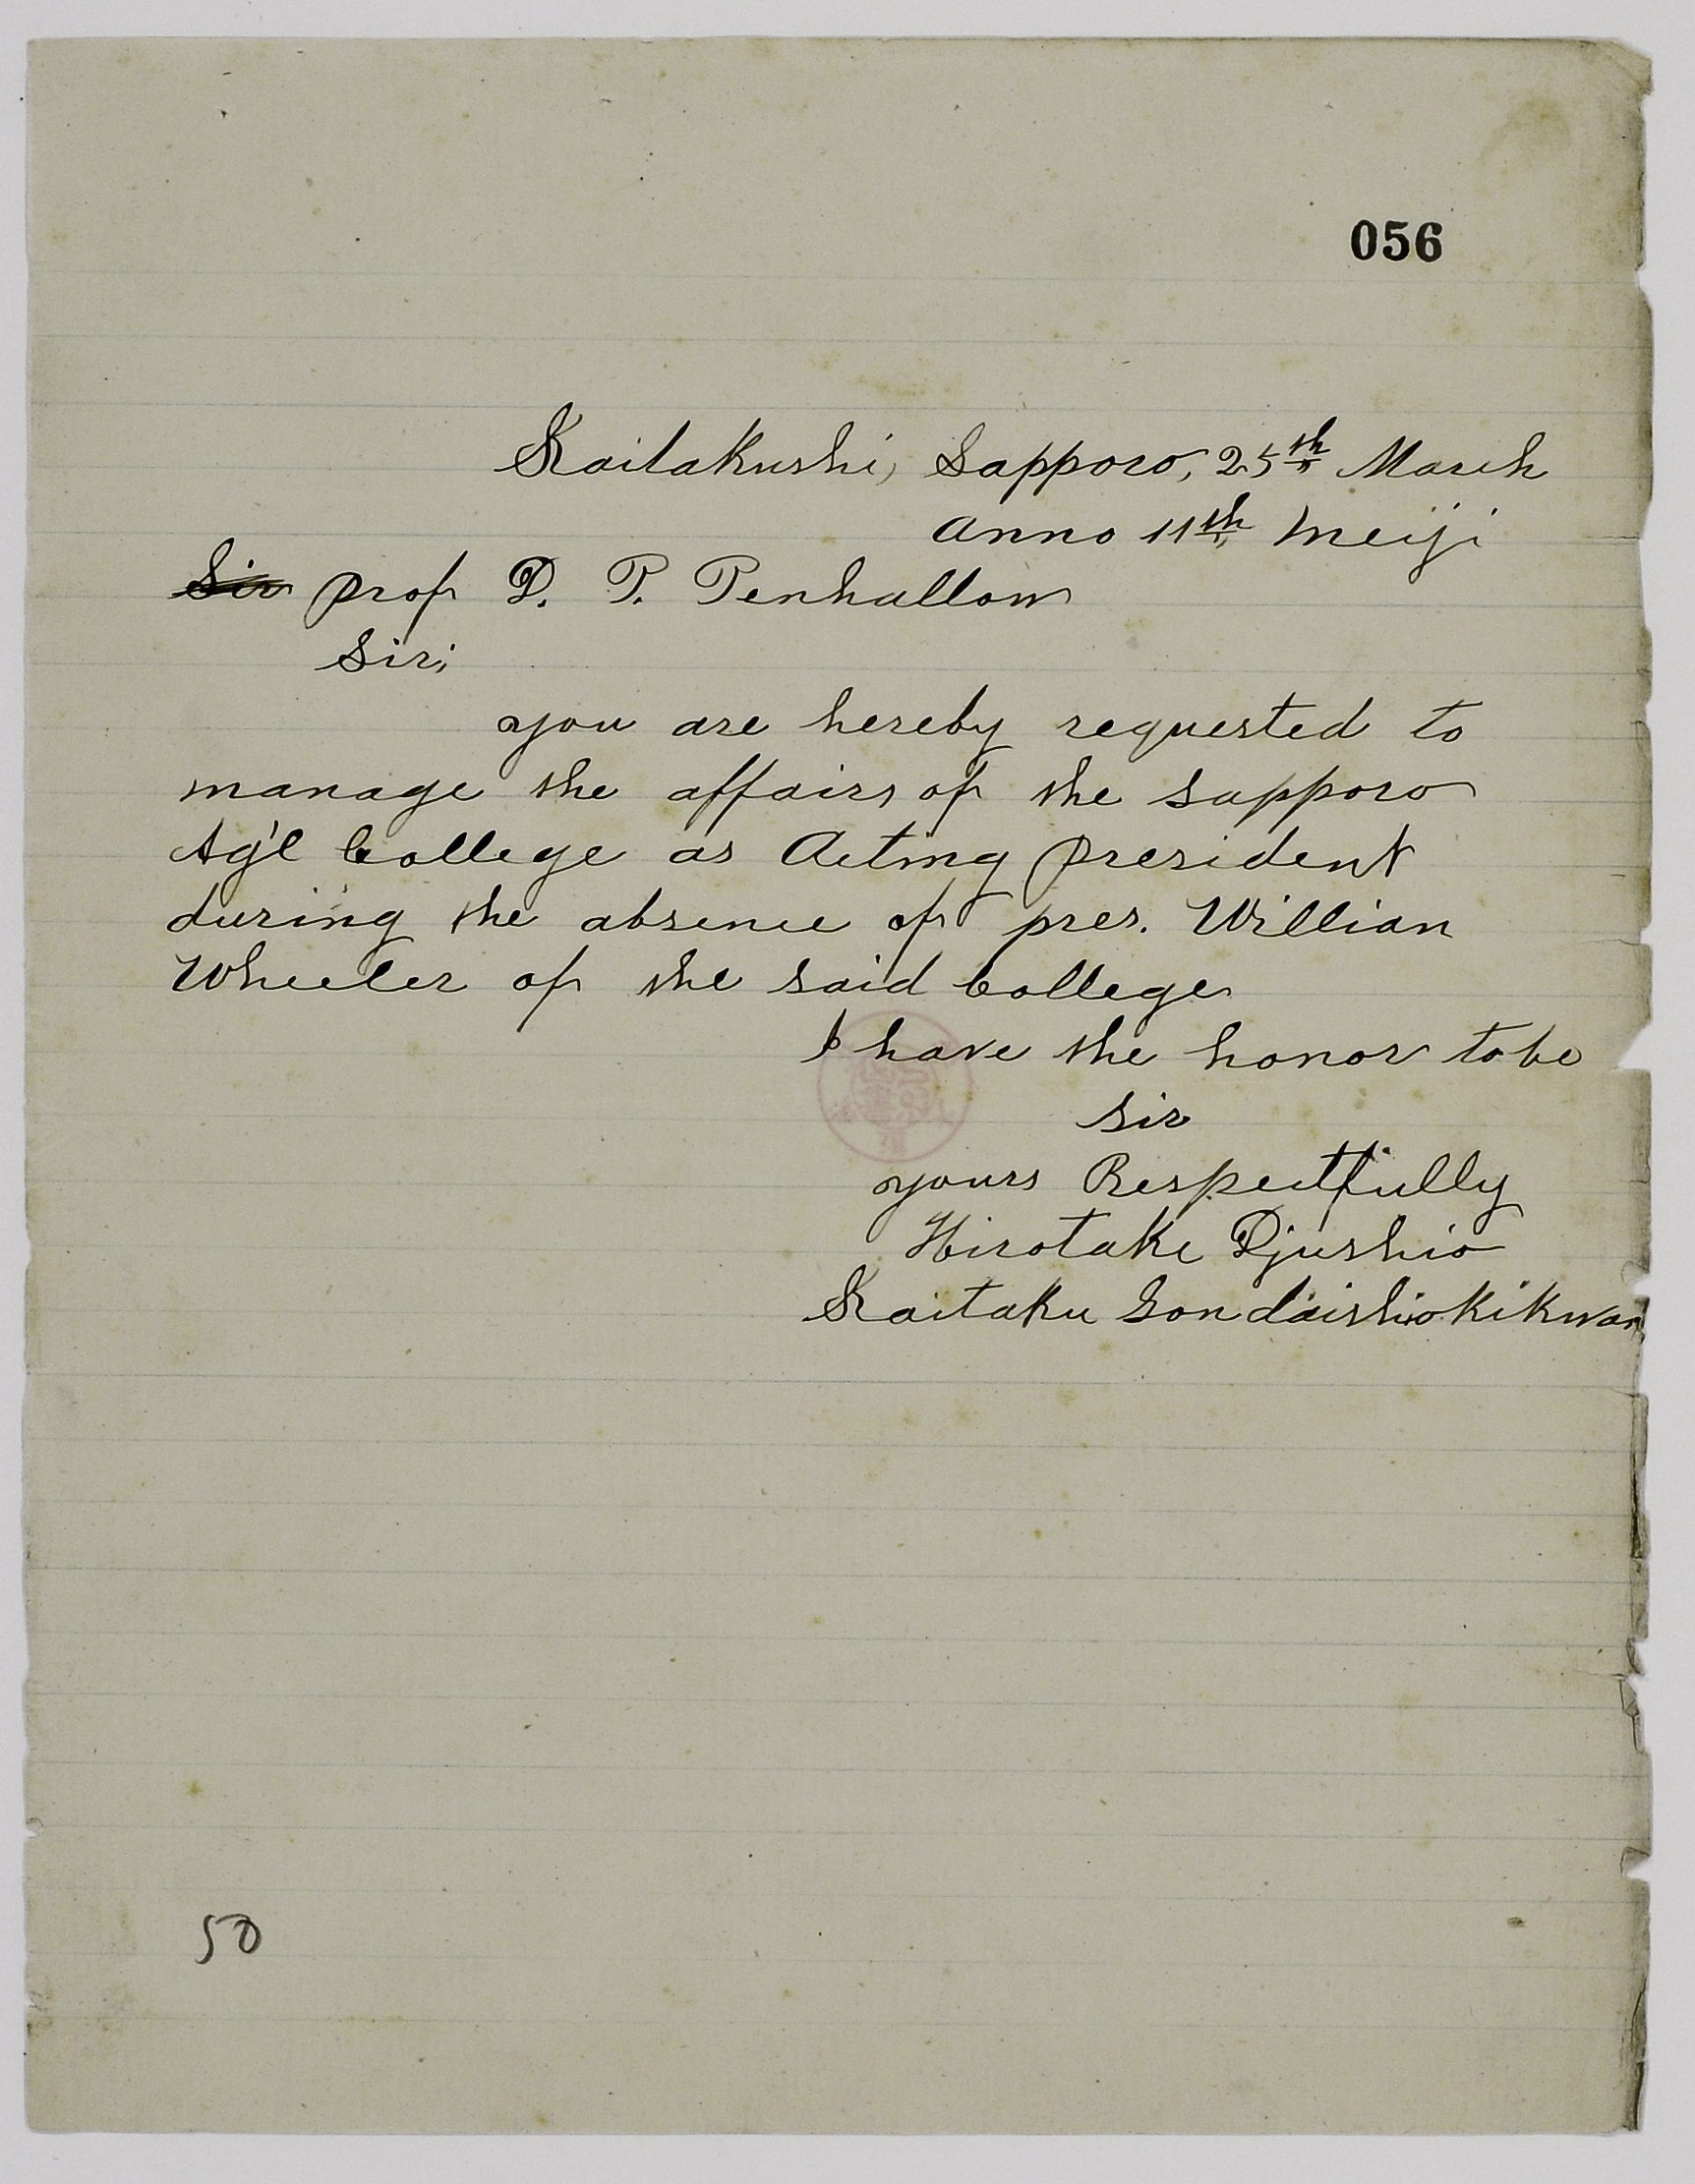 056
Kaitakushi, Sapporo, 25th March
Anno 11th Meiji
Sir prof D. P. Penhallow
Sir;
you are hereby requested to
manage the affairs of the Sapporo
Ag'l College as Acting president
during the absence of pres. Willian
Wheeler of the said College
I have the honor to be
Sir
yours Respectfully
Hirotake Djushio
Kaitaku Gon daishiokikwan
50